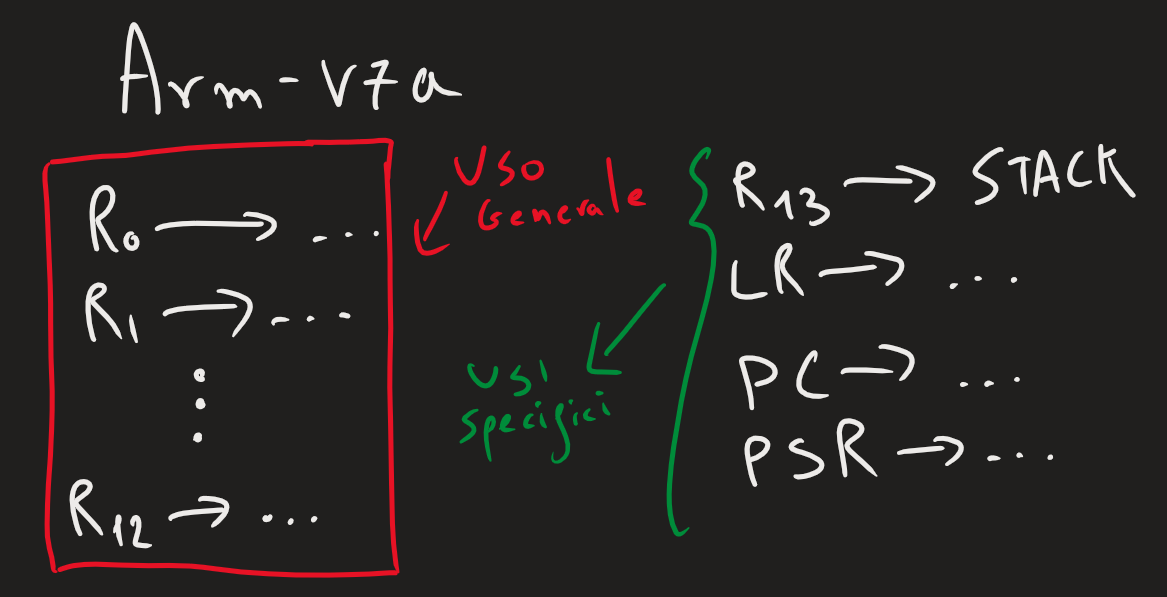 Arm-v7a
R0 → ...
R1 → ...
⋮
R12 → ...
USO
Generale
USI
specifici
R13 → STACK
LR → ...
PC → ...
PSR → ...